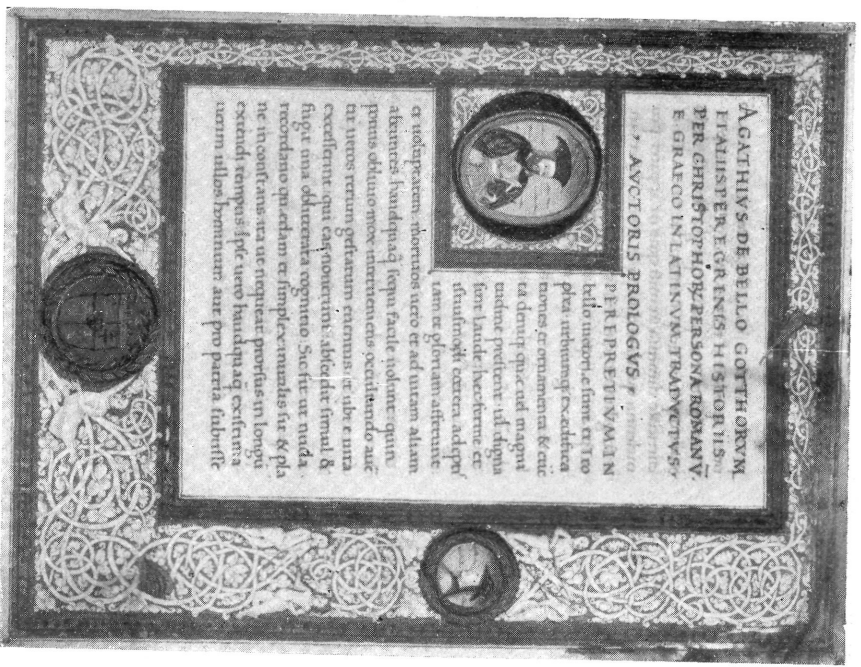 AGATHIVS DE BELLO GOTTHORVM
ET ALIIS PEREGRINIS HISTORIIS
PER CHRISTOPHORV̄ PERSONA ROMANV̄
E GRAECO IN LATINVM TRADVCTVS
AVCTORIS PROLOGVS
PEREPRETIVM IN
bello uictoriae sint et tro
phea urbiumq; ex
tiones et ornamenta &
ta deniq; quae ad magni
tudine
siue laude
istiusmodi cetera
tam et gloriam afferunt
et uoluptatem mortuos uero et ad uitam aliam
abeuntes haudquaq̄ sequi facile uolunt quin
potius obliuio mox interueniens occultando
et ueros rerum gestarum euentus et ubi e uita
excesserint qui eas nouerunt abscedit simul &
fugit una obliterata cognitio Sic fit ut nuda
recordatio quaedam et simplex inutilis sit &
ne inconstans ita ut nequeat prorsus in longū
extendi tempus Ipse uero haudquaq̄
uerim ullos hominum aut pro patria subiisse